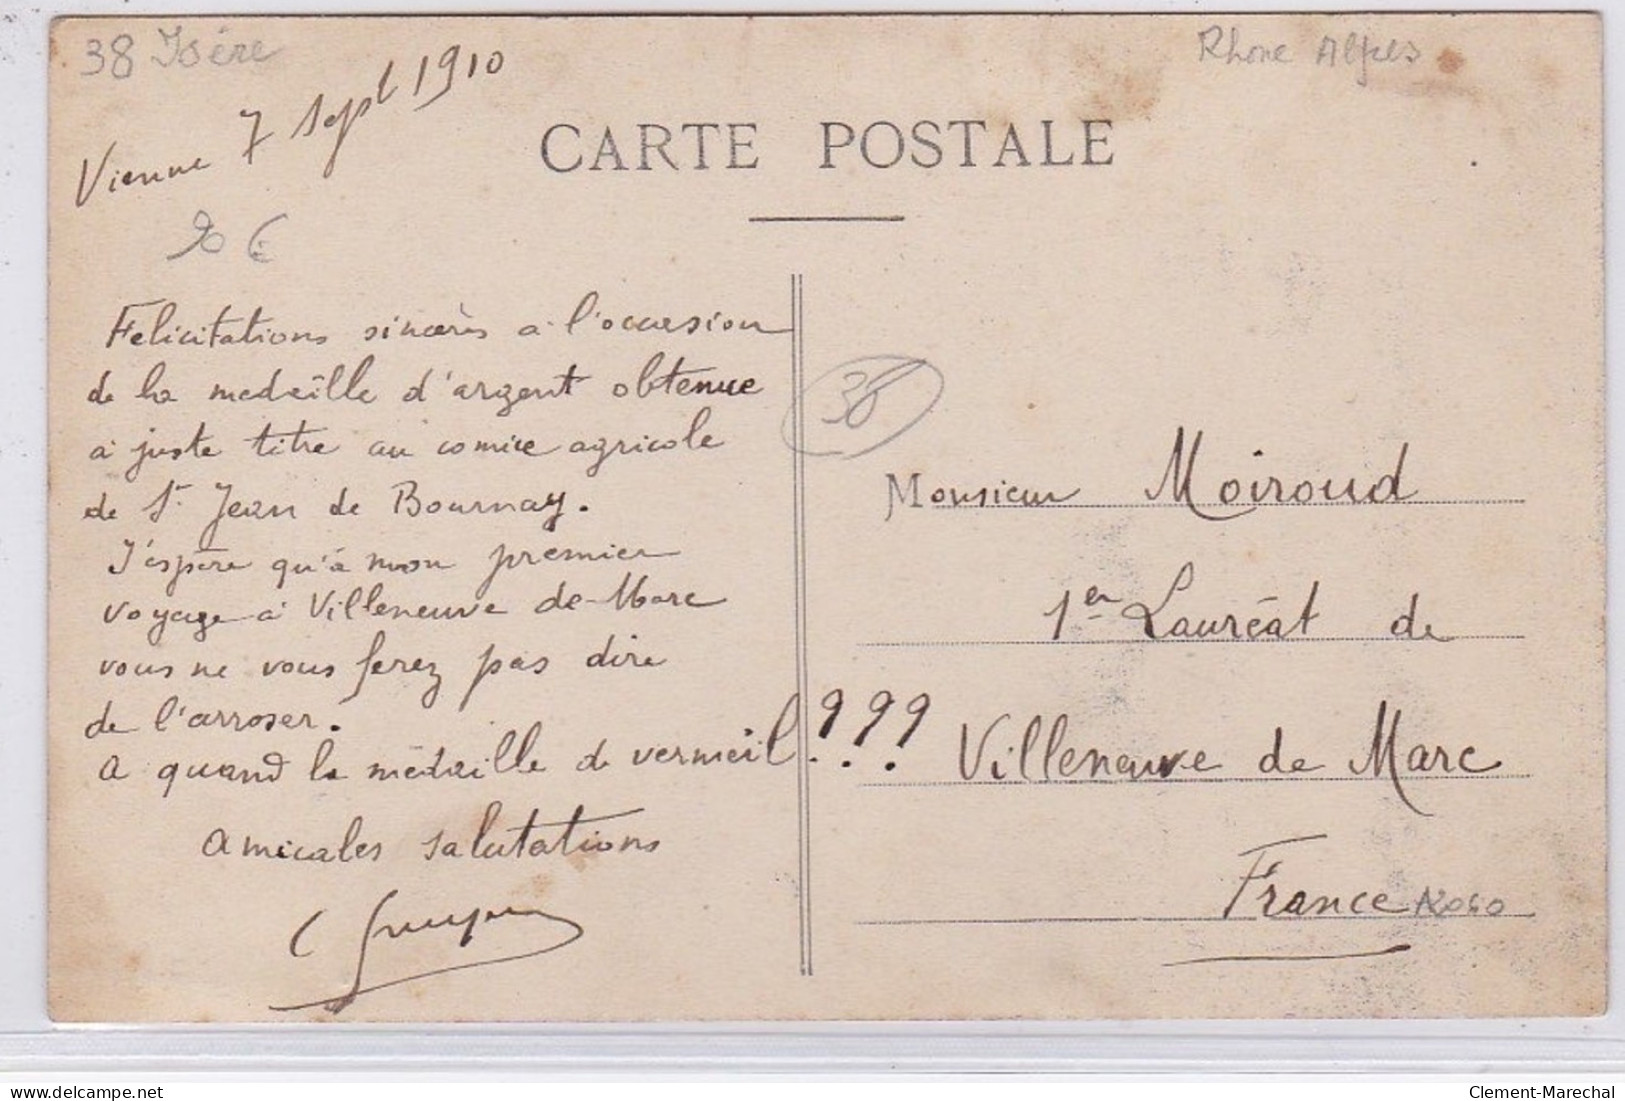 38 Isère
Rhone Alpes
Vienne 7 Sept 1910
CARTE POSTALE
Felicitations sincères a l'occasion
de la medaille d'argent obtenue
a juste titre au comice agricole
de St Jean de Bournay.
J'espère qu'à mon premier
voyage à Villeneuve de Marc
vous ne vous ferez pas dire
de l'arroser.
A quand la médaille de vermeil ???
Amicales salutations
38
Monsieur Moiroud
1er Lauréat de
Villeneuve de Marc
France
delcampe.net
Clement-Marechal